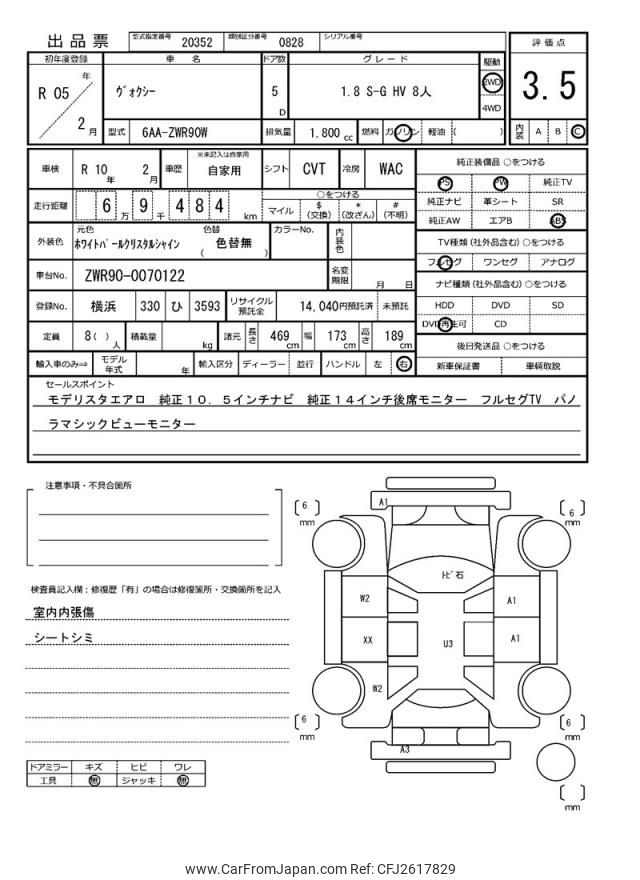 出品票 型式指定番号 20352 類別区分番号 0828 シリアル番号
評価点
3.5
内装 A B C
初年度登録 車名 ドア数 グレード 駆動
R 05 年 2 月
ヴォクシー 5 D 1.8 S-G HV 8人 2WD 4WD
型式 6AA-ZWR90W 排気量 1,800 cc 燃料 ガソリン 軽油 ( )
車検 R 10 年 2 月 車歴 ※未記入は自家用 自家用 シフト CVT 冷房 WAC
走行距離 6 万 9 千 4 8 4 km
○をつける
マイル $ (交換) * (改ざん) # (不明)
外装色 元色 ホワイトパールクリスタルシャイン 色替 ( 色替無 ) カラーNo. 内装色
車台No. ZWR90-0070122 名変期限 月 日
登録No. 横浜 330 ひ 3593 リサイクル預託金 14,040円預託済 未預託
定員 8( ) 人 積載量 kg 諸元 長さ 469 cm 幅 173 cm 高さ 189 cm
輸入車のみ⇒ モデル年式 年 輸入区分 ディーラー 並行 ハンドル 左 右
純正装備品 ○をつける
PS PW 純正TV
純正ナビ 革シート SR
純正AW エアB ABS
TV種類 (社外品含む) ○をつける
フルセグ ワンセグ アナログ
ナビ種類 (社外品含む) ○をつける
HDD DVD SD
DVD再生可 CD
後日発送品 ○をつける
新車保証書 車輌取説
セールスポイント
モデリスタエアロ 純正10．5インチナビ 純正14インチ後席モニター フルセグTV パノ
ラマシックビューモニター
注意事項・不具合箇所
検査員記入欄：修復歴「有」の場合は修復箇所・交換箇所を記入
室内内張傷
シートシミ
ドアミラー キズ ヒビ ワレ
工具 無 ジャッキ 無
A1
6 mm
6 mm
トビ石
W2 A1
XX U3 A1
W2
6 mm
6 mm
A3
mm
www.CarFromJapan.com Ref: CFJ2617829